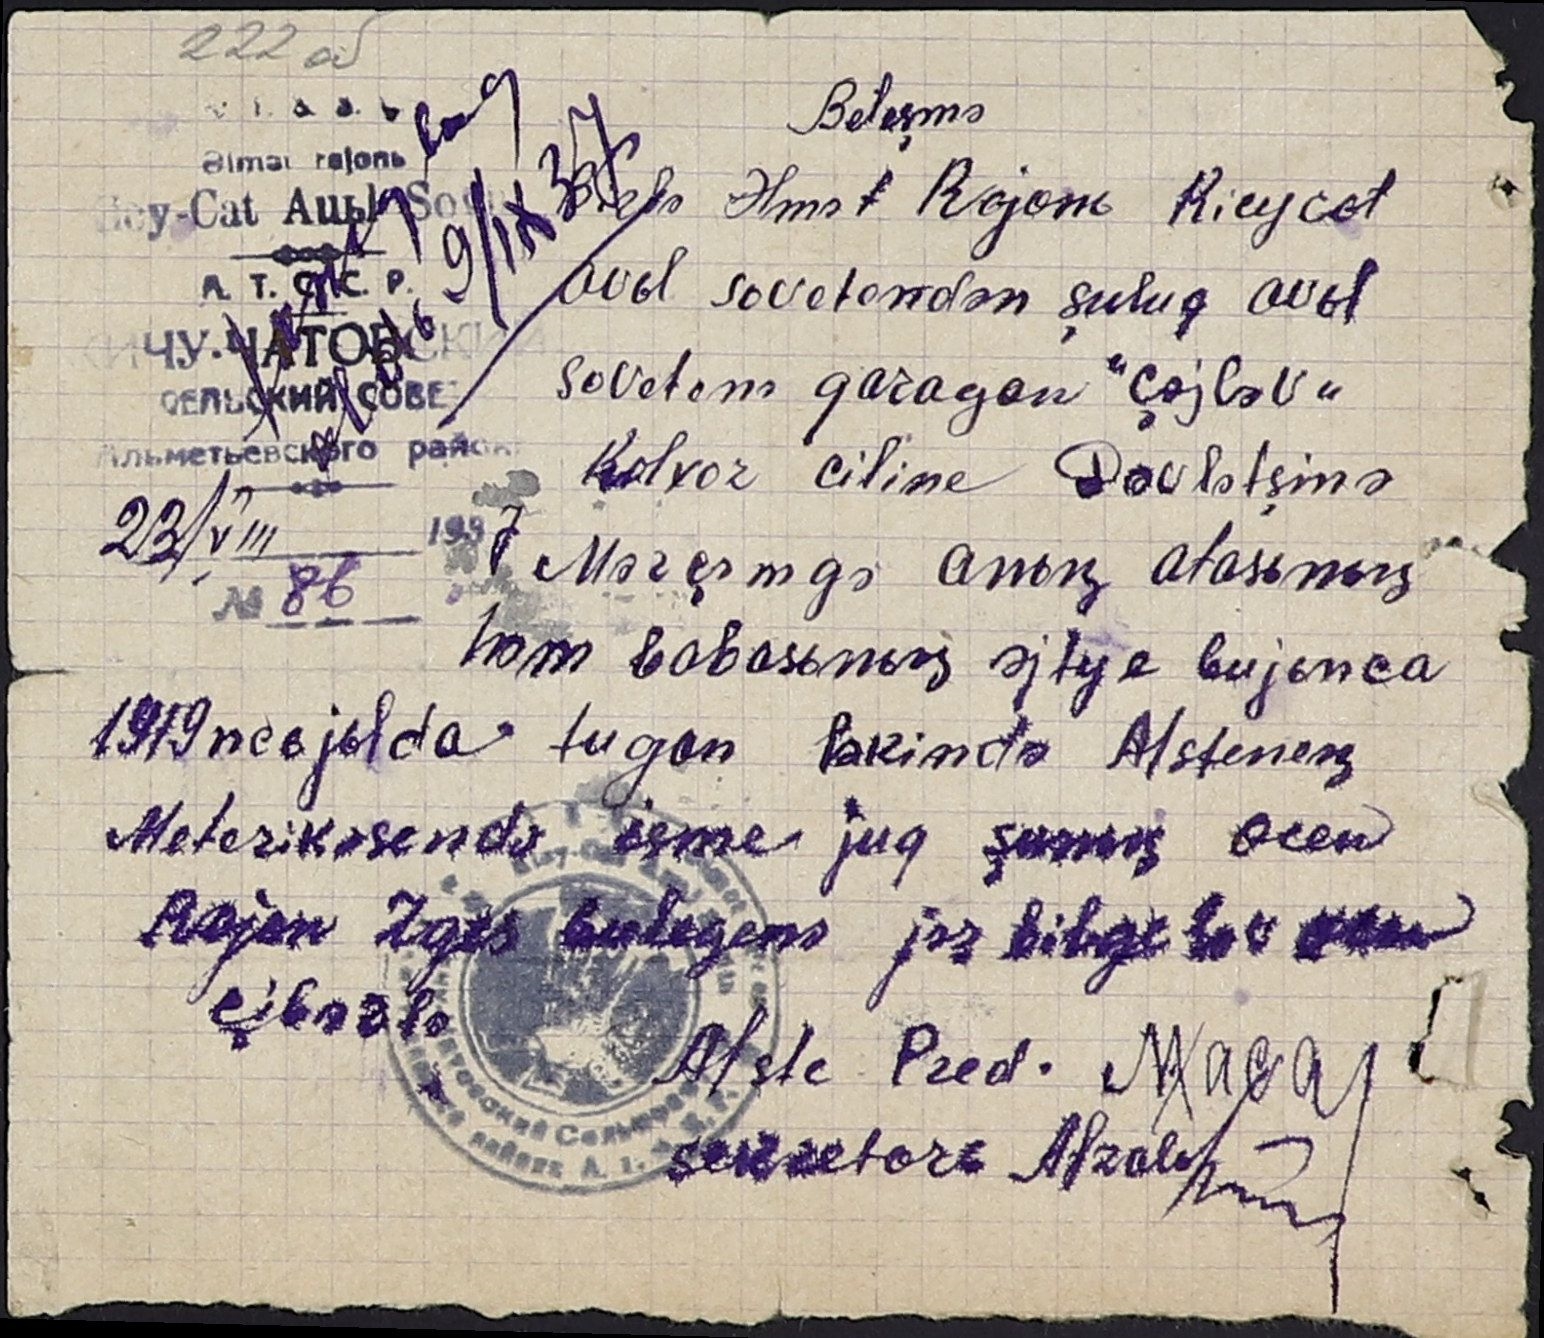 222 об
Əlmət rajonь
Kicy-Cat Auьl Sov
А. Т. С. С. Р.
КИЧУ-ЧАТОВСКИЙ
СЕЛЬСКИЙ СОВЕТ
Альметьевского района
23/VIII 1937
№ 86
9/IX 37
Beleşmə
Əlmət Rajonь Kicycat
avьl sovetendən şuluq avьl
sovetenə qaragan "Çəjləv"
Kolxoz ciline Dəvlətşinə
Mərzşəmgə anьꞑ atasьnьꞑ
həm babasьnьꞑ əjtye bujьnca
1919ncь jьlda tugan ləkində Afsteneꞑ
Meterikəsendə isme juq şunьꞑ ocen
Rajon Zgəs bulegenə jəz bilgeləv
çibərelə
Afste Pred.
sekretare Afzal